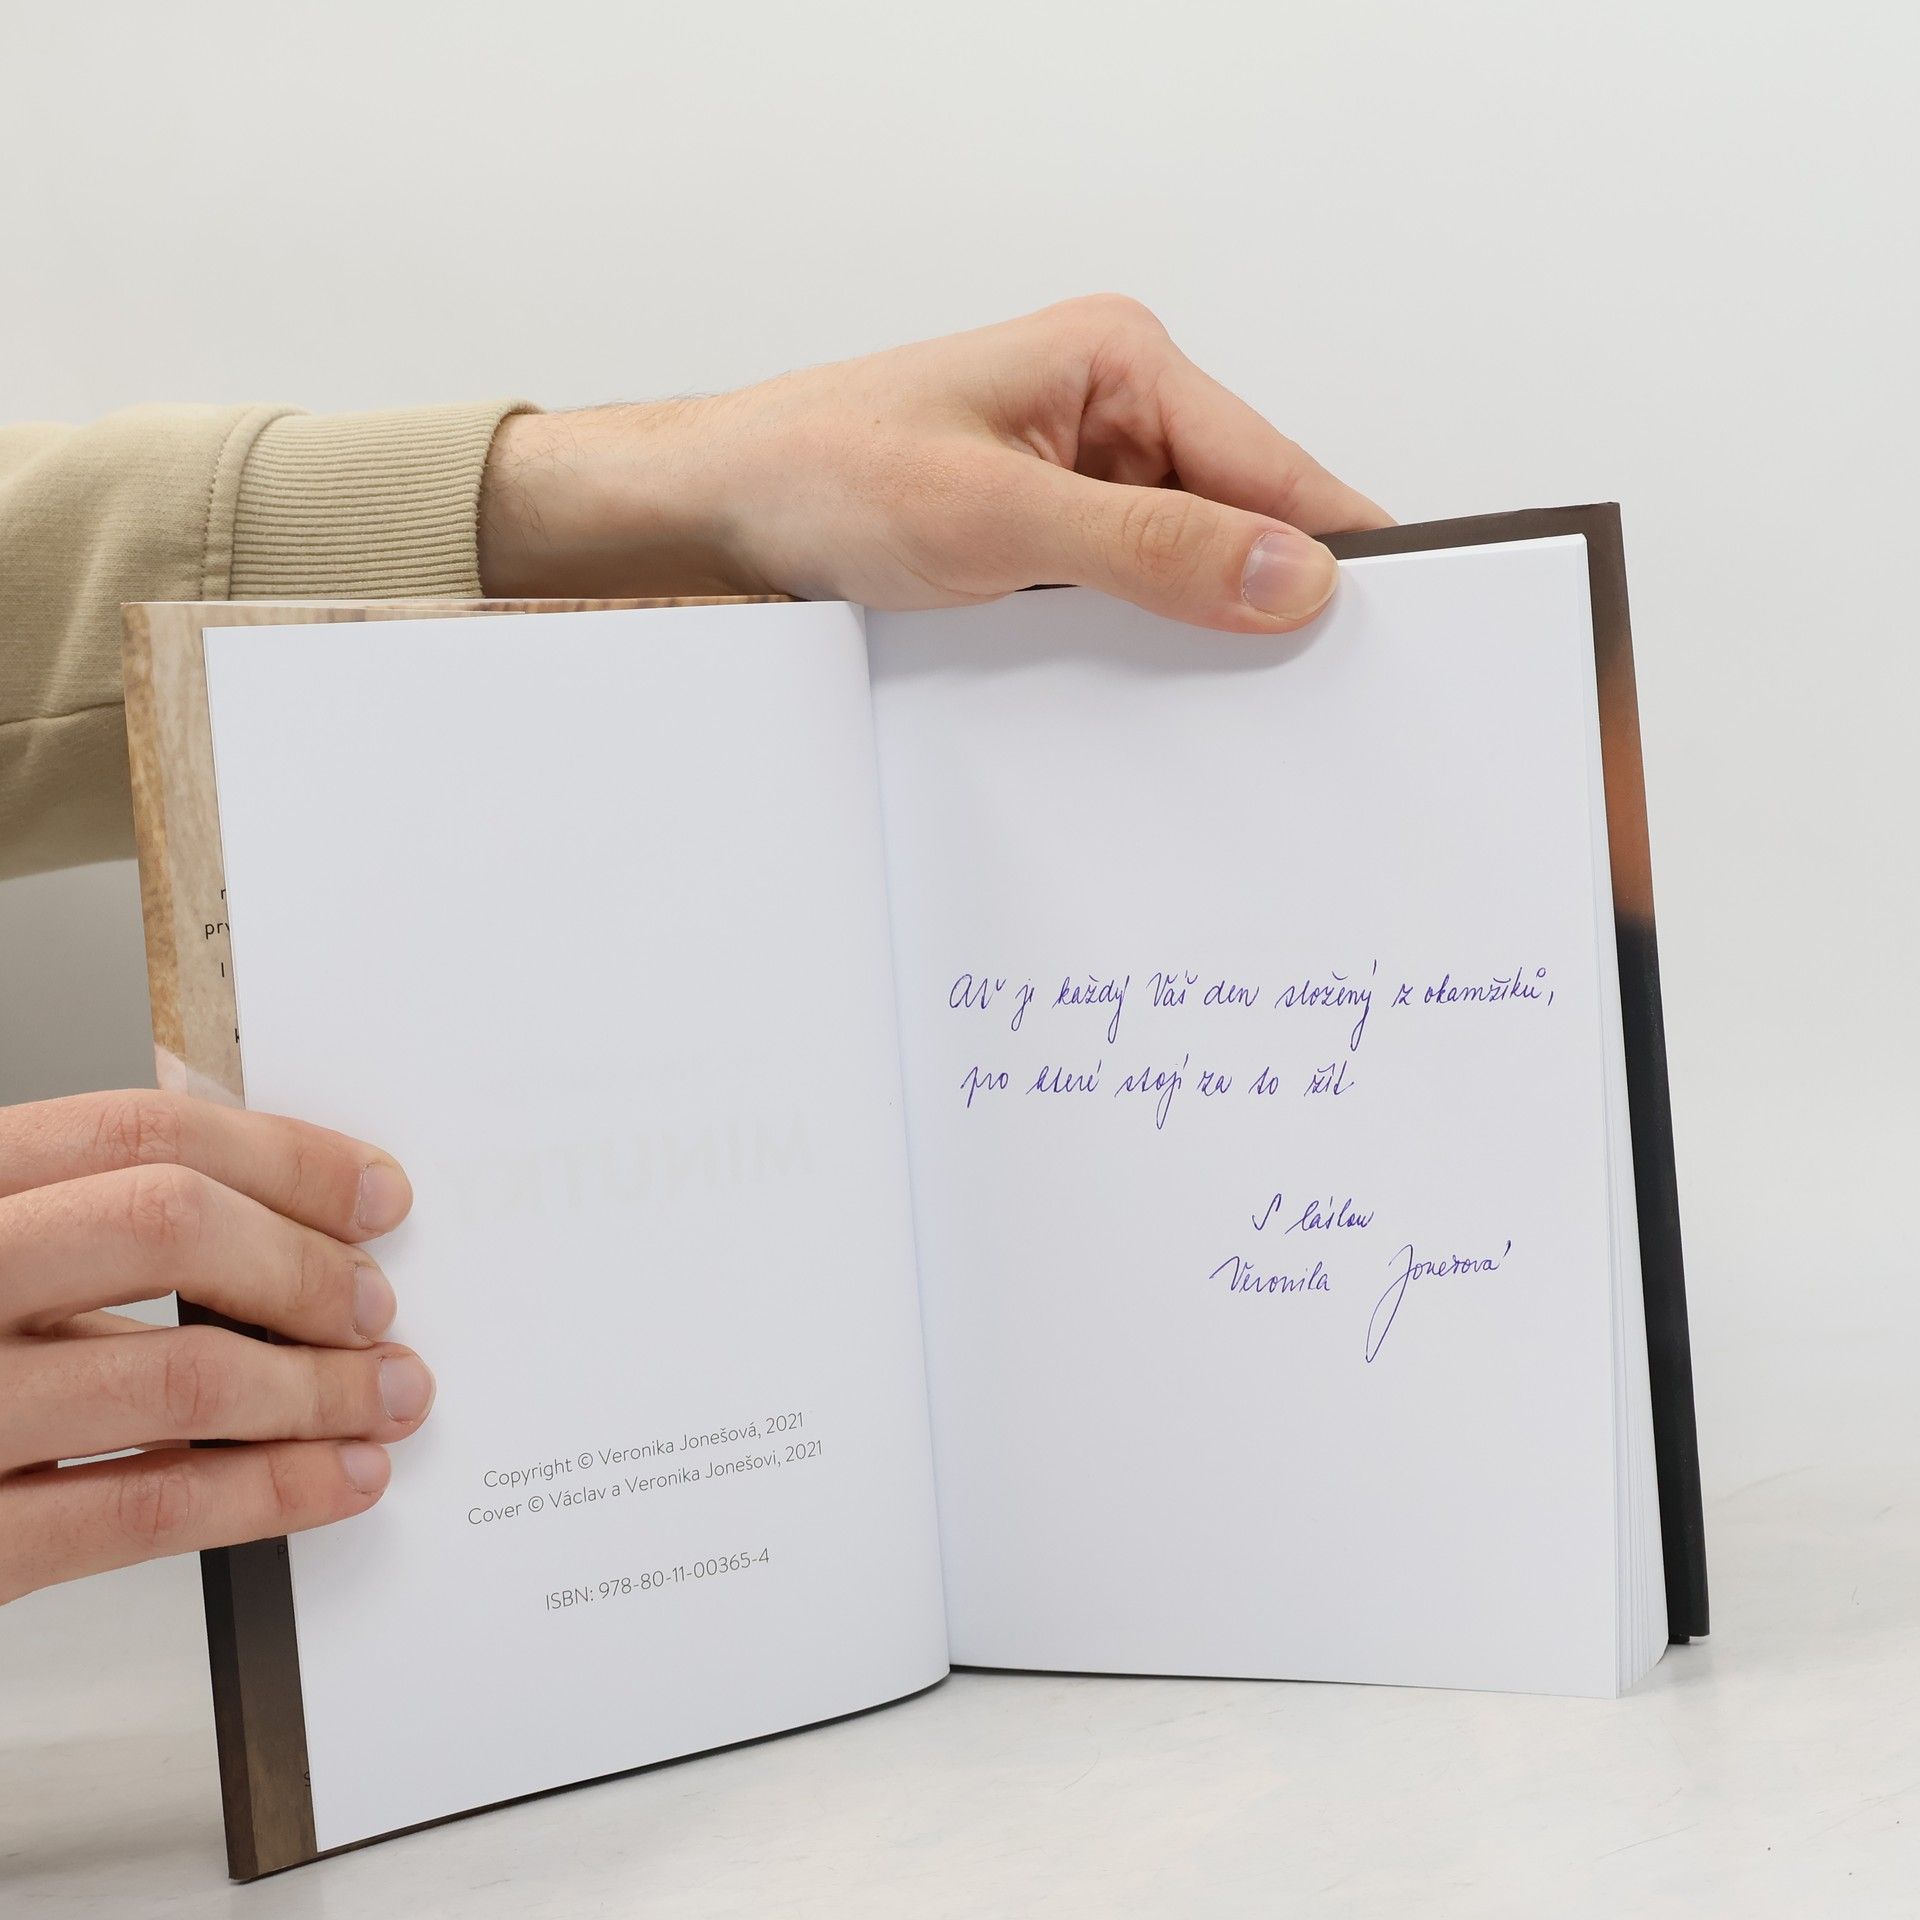 prv
MINUT
Copyright © Veronika Jonešová, 2021
Cover © Václav a Veronika Jonešovi, 2021
ISBN: 978-80-11-00365-4
Ať je každý Váš den složený z okamžiků,
pro které stojí za to žít
S láskou
Veronika Jonešová